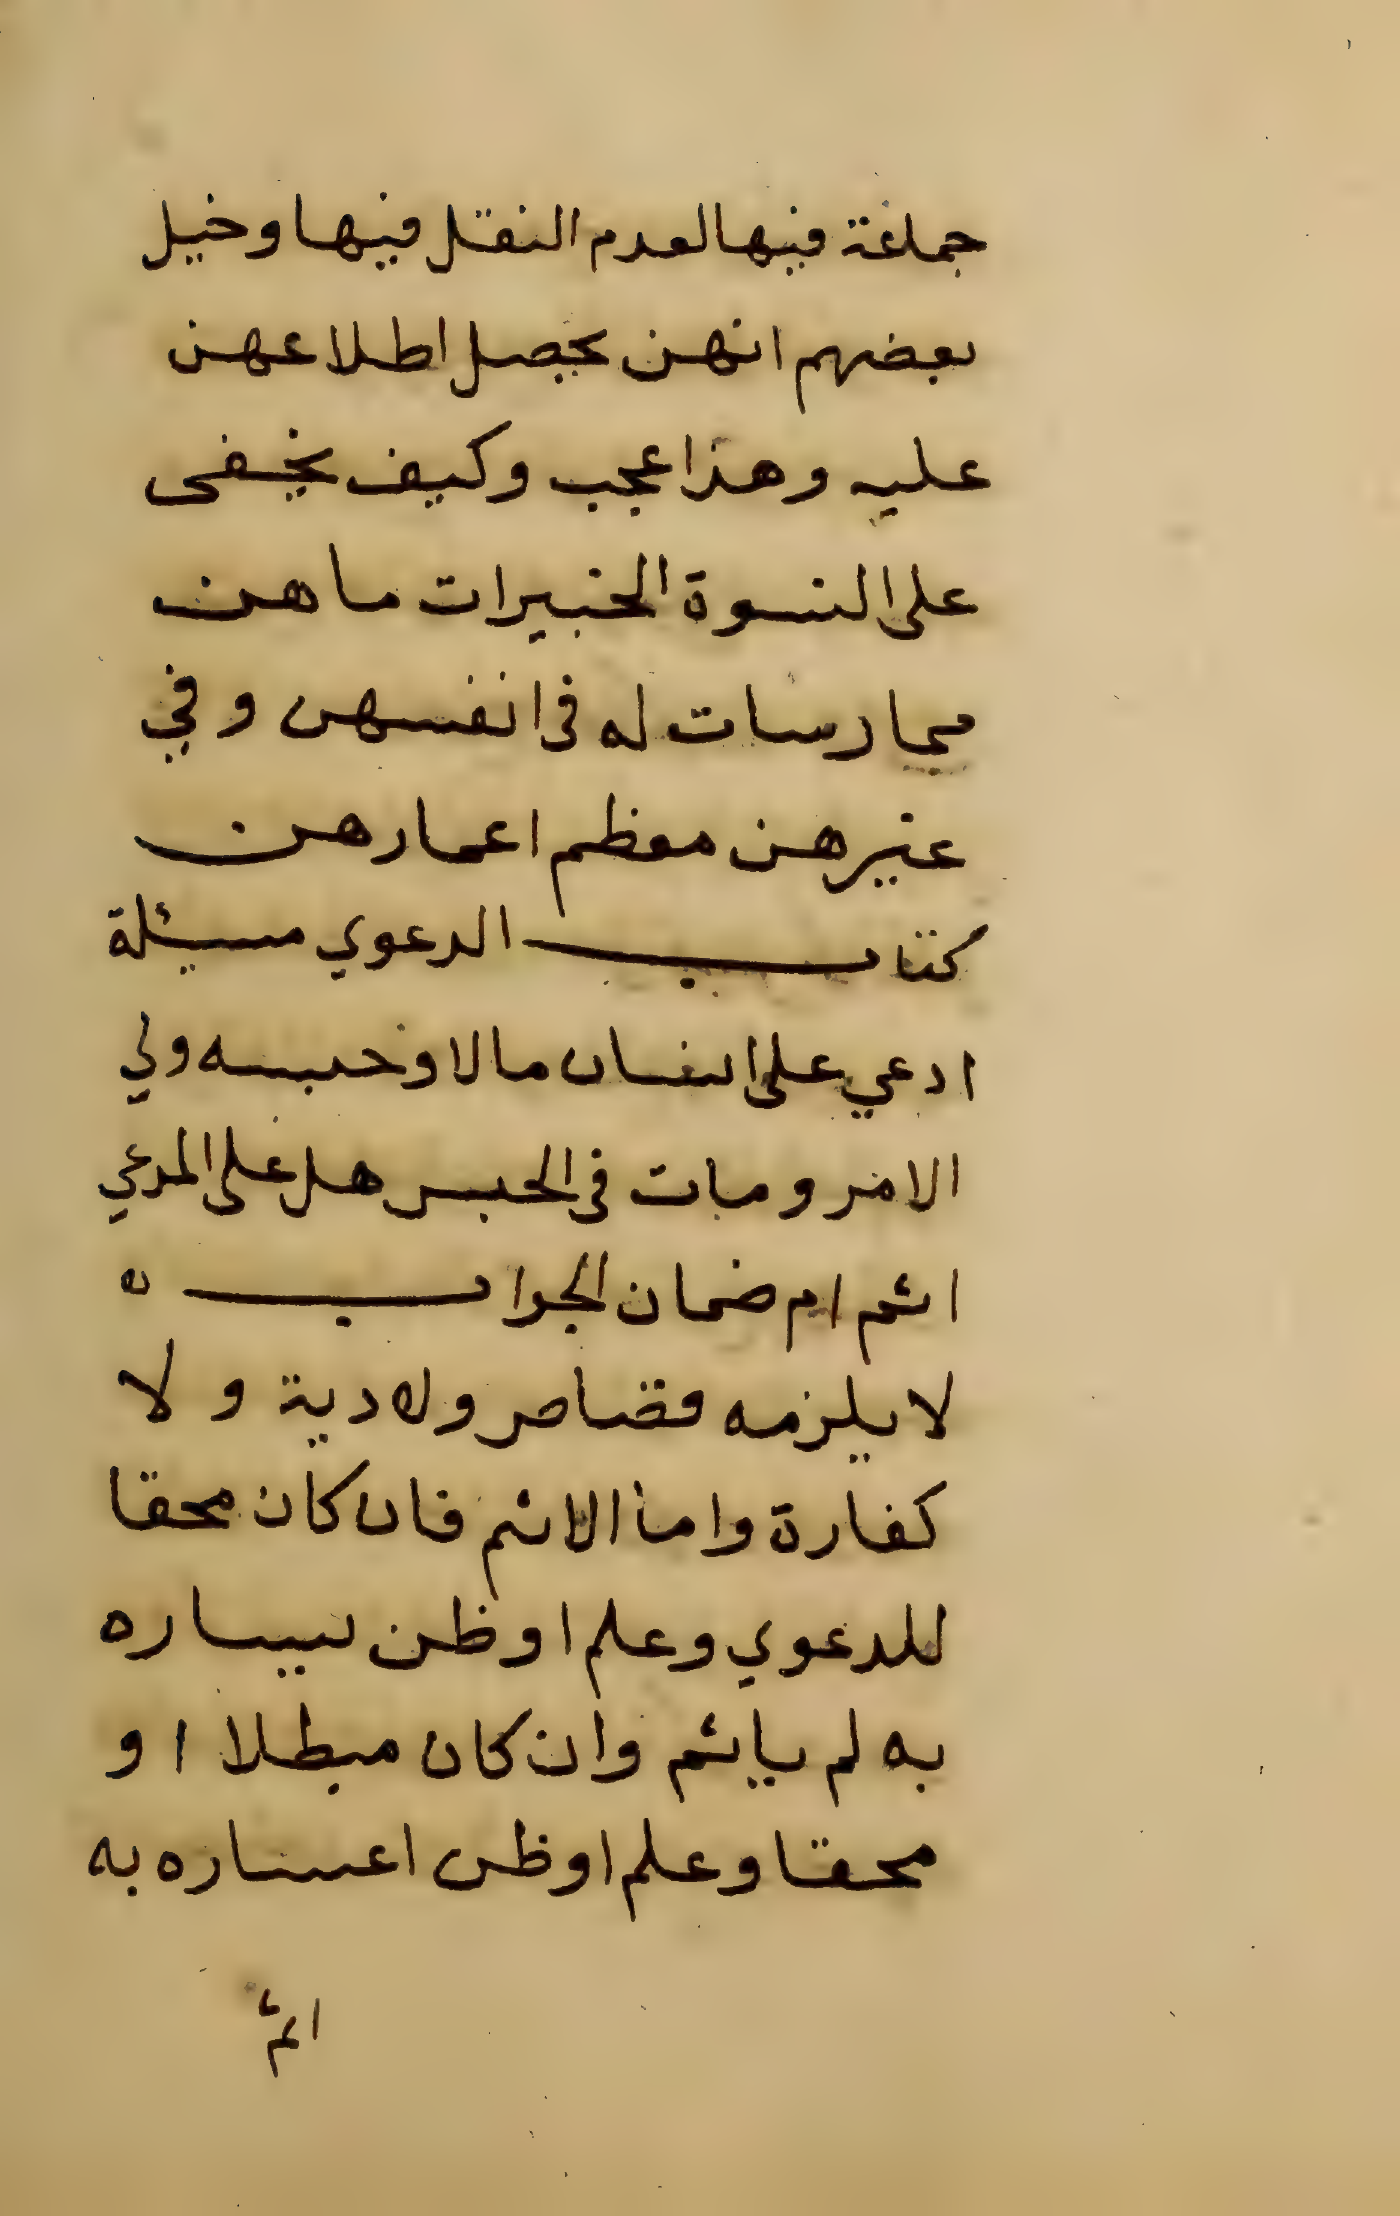 جماعة فيها لعدم النقل فيها وخيل
بعضهم انهن يحصل اطلاعهن
عليه وهذا عجب وكيف يخفى
على النسوة الخبيرات ما هن
ممارسات له فى انفسهن وفي
غيرهن معظم اعمارهن
كتاب الدعوي مسيئلة
ادعي على انسان مالا وحبسه ولي
الامر ومات فى الحبس هل على المدعي
اثم ام ضمان الجواب ه
لا يلزمه قصاص ولا دية ولا
كفارة واما الاثم فان كان محقا
للدعوي وعلم او ظن يساره
به لم ياثم وان كان مبطلا او
محقا وعلم او ظن اعساره به
اثم